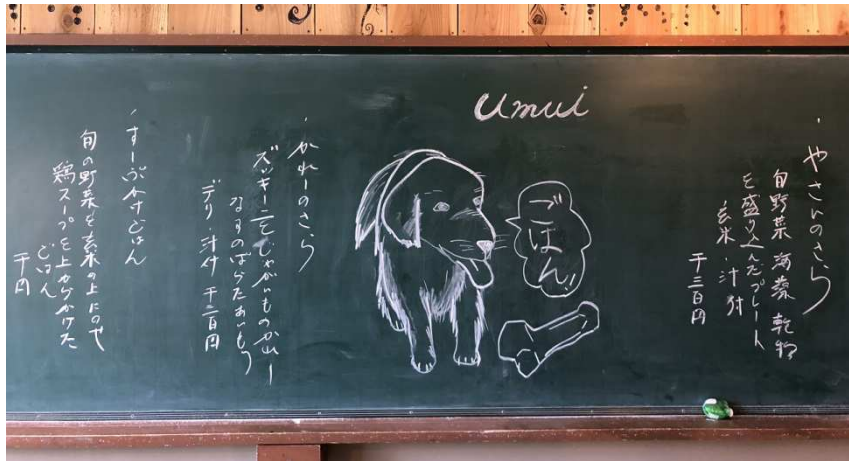 Umui
・やさいのさら
旬野菜 海藻 乾物
を盛り込んだプレート
玄米・汁付
千三百円
ごはん!!
・かれーのさら
ズッキーニとじゃがいものカレー
なすの
デリ・汁付 千二百円
・すーぷかけごはん
旬の野菜を玄米の上にのせ
鶏スープを上からかけた
ごはん
千円